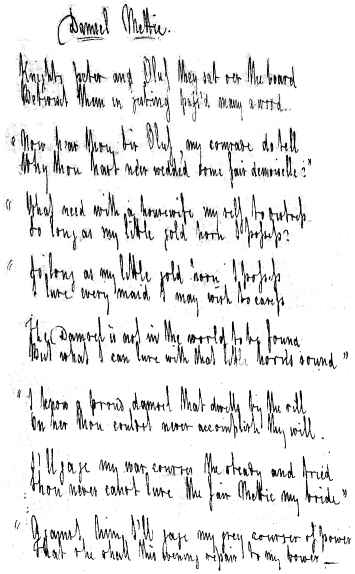 Damsel Mettie.
Knights Peter and Oluf they sat over the board
Betwixt them in jesting pass'd many a word.
"Now hear thou, Sir Oluf, my comrade do tell
Why thou hast never wedded some fair demoiselle?"
"What need with a housewife my self to
So long as my little gold horn I possess?
"So long as my little gold horn I possess
I lure every maid I may wish to caress
The Damsel is not in the world to be found
But what I can lure with that little horn's sound"
"I know a proud damsel that dwells by the rill
On her thou couldst never accomplish thy will.
I'll gage my war courser the steady and tried
Thou never canst lure the fair Mettie my bride"
"Against him, I'll gage my grey courser of power
That she shall this evening repair to my bower.—